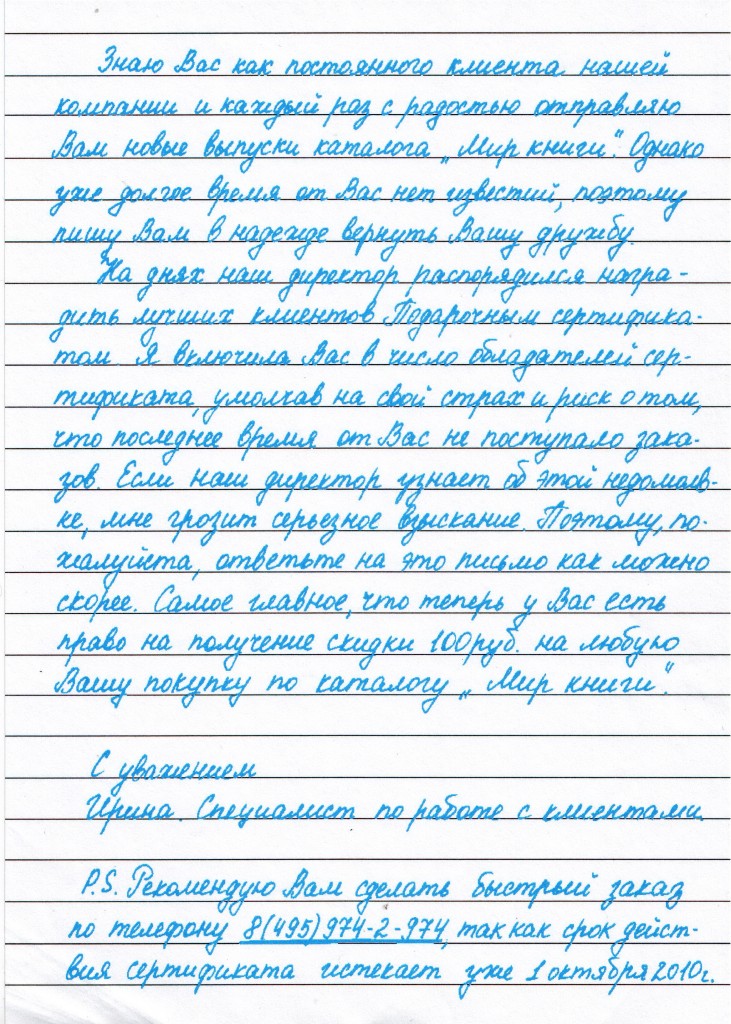 Знаю Вас как постоянного клиента нашей
компании и каждый раз с радостью отправляю
Вам новые выпуски каталога „Мир книги“. Однако
уже долгое время от Вас нет известий, поэтому
пишу Вам в надежде вернуть Вашу дружбу.
На днях наш директор распорядился награ-
дить лучших клиентов Подарочным сертифика-
том. Я включила Вас в число обладателей сер-
тификата, умолчав на свой страх и риск о том,
что последнее время от Вас не поступало зака-
зов. Если наш директор узнает об этой недомолв-
ке, мне грозит серьезное взыскание. Поэтому, по-
жалуйста, ответьте на это письмо как можно
скорее. Самое главное, что теперь у Вас есть
право на получение скидки 100 руб. на любую
Вашу покупку по каталогу „Мир книги“.
С уважением
Ирина. Специалист по работе с клиентами.
P.S. Рекомендую Вам сделать быстрый заказ
по телефону 8(495)974-2-974, так как срок дейст-
вия сертификата истекает уже 1 октября 2010г.